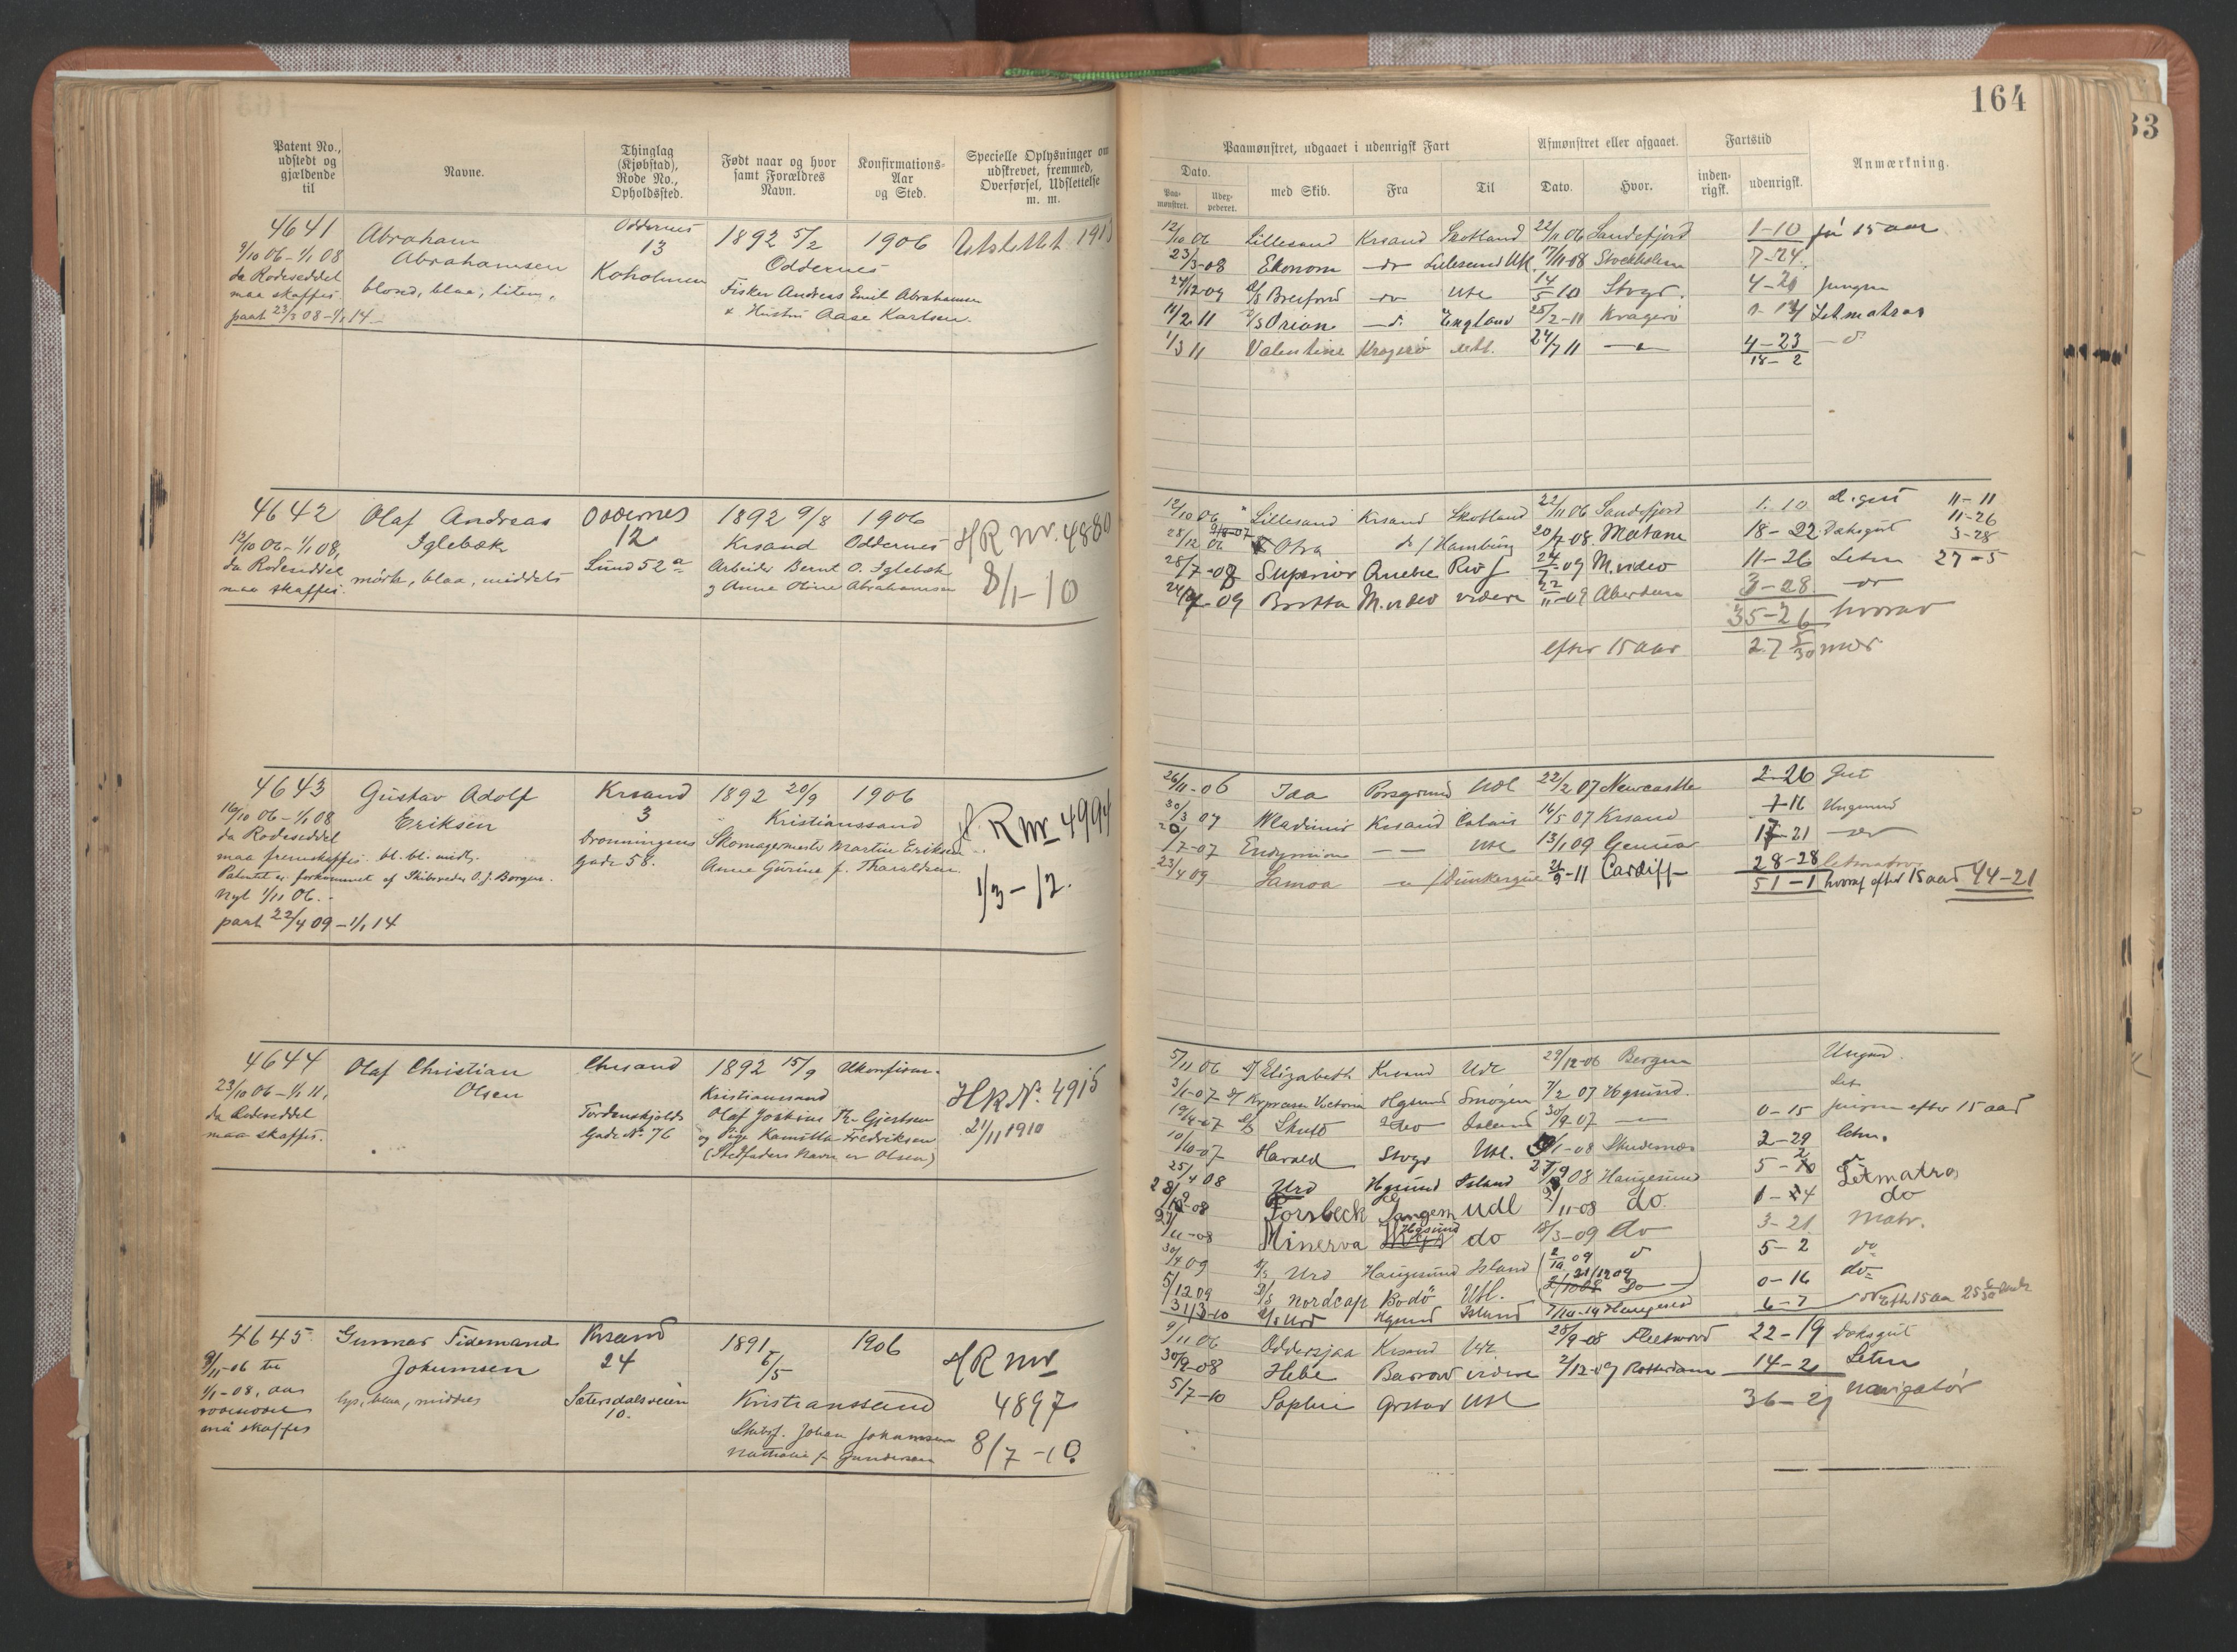 164
33
Patent No., udstedt og gjældende til
Navne.
Thinglag (Kjøbstad), Rode No., Opholdssted.
Født naar og hvor samt Forældres Navn.
Konfirmations-Aar og Sted.
Specielle Oplysninger om udskrevet, fremmed, Overførsel, Udslettelse m. m.
Paamønstret, udgaaet i udenrigsk Fart
Afmønstret eller afgaaet.
Fartstid
Anmærkning.
Dato.
Paa-mønstret.
med Skib.
Fra
Til
Dato.
Hvor.
inden-rigsk.
udenrigsk.
4641 Abraham Oddernes 1892 5/2 1906 Udslettet 1913
9/10 06 - 1/1 08 Abrahamsen 13 Oddernes
da Rodeseddel blond, blaa, liten, Koholmen Fisker Andreas Emil Abrahamsen
maa skaffes. + Hustru Aase Karlsen.
patt 23/3 08 - 1/1 14
12/10 06 Lillesand Krsand Skotland 22/11 06 Sandefjord 1-10 før 15 aar
23/3-08 Ekonom do Lillesund Udl. 17/11-08 Stockholm 7-24
24/12 09 D/S Breifond do Utl 14/5 10 Stvgr. 4-20 Jungm
11/2 11 D/S Orion do England 25/2-11 Kragerø 0-14 Letmatros
1/3 11 Valentine Kragerø utl. 24/7 11 4-23 do
18-2
4642 Olaf Andreas Oddernes 1892 9/8 1906 HR Nr. 4880
12/10 06 - 1/1 08, Iglebæk 12 Krsand Oddernes
da Rodeseddel mørk, blaa, middels Lund 52 a Arbeider Bernt O. Iglebæk 8/1-10
maa skaffes. og Anne Oline Abrahamsen
12/10 06 Lillesand Krsand Skotland 22/11 06 Sandefjord 1.10 11-11
28/12 06 Otra do Hamburg 20/7 08. Matane 18-22 Dæksgut 11-26
28/7-08 Superior Quebec Rio 24/7-09 M.video 11-26 Letm 3-28
24/7-09 Britta M.video videre 22/11-09 Aberdeen 3-28 do 27-5
35-26 hvorav
efter 15 aar 27 5/30 mdr.
4643 Gustav Adolf Krsand 1892 20/9 1906
16/10 06 - 1/1 08 Eriksen 3 Kristianssand HR Nr 4994
da Rodeseddel Dronningens Skomagermester Martin Eriksen
maa fremskaffes. bl. bl. midt. Gade 58. Anne Gurine f. Tharaldsen
Patentet er forkommet af Skibsreder O. J. Borgen. 1/3-12.
Nyt 1/11 06.
patt 22/4 09 - 1/1 14
26/11-06 Ida Porsgrund Udl 22/2 07 Newcastle 2-26 Gut
30/3 07 Wladimir Krsand Calais 16/5 07 Krsand 1-16 Ungmand
20/7-07 Endymion Utl 13/1 09 Genua 17-21 do
23/4 09 Samoa Dunkerque 21/9-11 Cardiff 28-28 letmatros
51-1 hvoraf efter 15 aar 44-21
4644 Olaf Christian Chrsand 1892 15/9 Ukonfirm. HR Nr. 4915
23/10 06 - 1/1 11, Olsen Kristianssand
da Rodeseddel Tordenskjolds Olaf Joakim Th. Gjertsen 21/11 1910
maa skaffes. Gade No 76 og Pige Kamilla Fredriksen
(Stedfaders Navn er Olsen)
5/11 06 D/S Elizabeth Krsand Udl 29/12-06 Bergen Ungmd.
3/1-07 Victoria Hgsund Smøgen 7/2 07 Hgsund. Let
19/4-07 Skutt do Island 30/9-07 0-15 Jungm efter 15 aar
10/10-07 Harald Stvgr Utl. 9/1-08 Skudenes 2-29 letm.
25/4 08 Urd Hgsund Island 08 Haugesund 5-2 Letmatros
28/9-08 Forsbeck Langesn udl 2/11-08 do 1-4 do
27/11-08 Minerva Hgsund do 18/3-09 do 3-21 Matr.
30/4 09 D/S Urd Haugesund Island 2/10 09 do 5-2 do
5/12 09 D/S Nordcap Bodø Utl. 21/12 09 do 0-16 do
31/3-10 D/S Urd Hgsund Island 7/10-10 Haugesund 6-7 do
4645 Gunnar Fidemand Krsand 1891 1906 HR Nr
9/11-06 til Johannsen 24 6/5 4897
1/1-08, aar lys, blaa, middels Sætersdalsveien Kristianssand
rodeseddel 10. Skibsf. Johan Johannsen 8/7-10.
må skaffes Nathalie f. Gundersen
9/11 06 Oddersjaa Krsand Udl 28/9-08 Fleetwood 22-19 Dæksgut
30/9-08 Hebe Barrow videre 2/12-09 Rotterdam 14-2 Letm
5/7-10 Sophie Grstad Utl 36-21 Navigatør